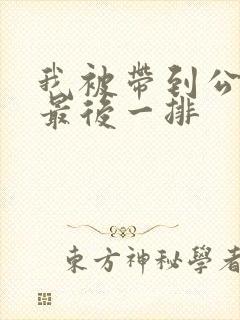 我被帶到公
最後一排
東方神秘學者